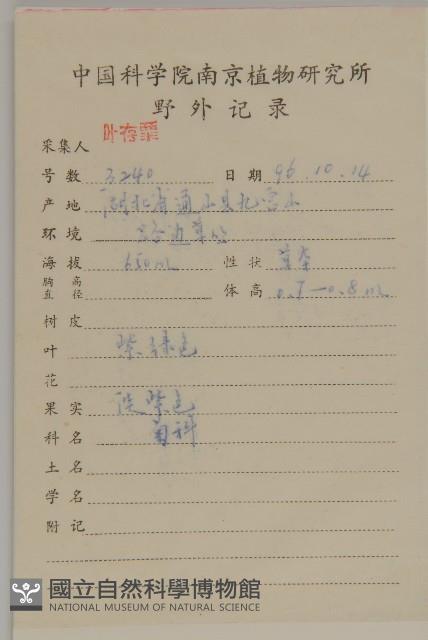 中国科学院南京植物研究所
野外记录
采集人 叶存粟
号数 3240 日期 96.10.14
产地 湖北省通山县九宫山
环境 路边草丛
海拔 650m 性状 草本
胸高直径 体高 0.7—0.8m
树皮
叶 紫绿色
花
果实 淡紫色
科名 菊科
土名
学名
附记
國立自然科學博物館
NATIONAL MUSEUM OF NATURAL SCIENCE